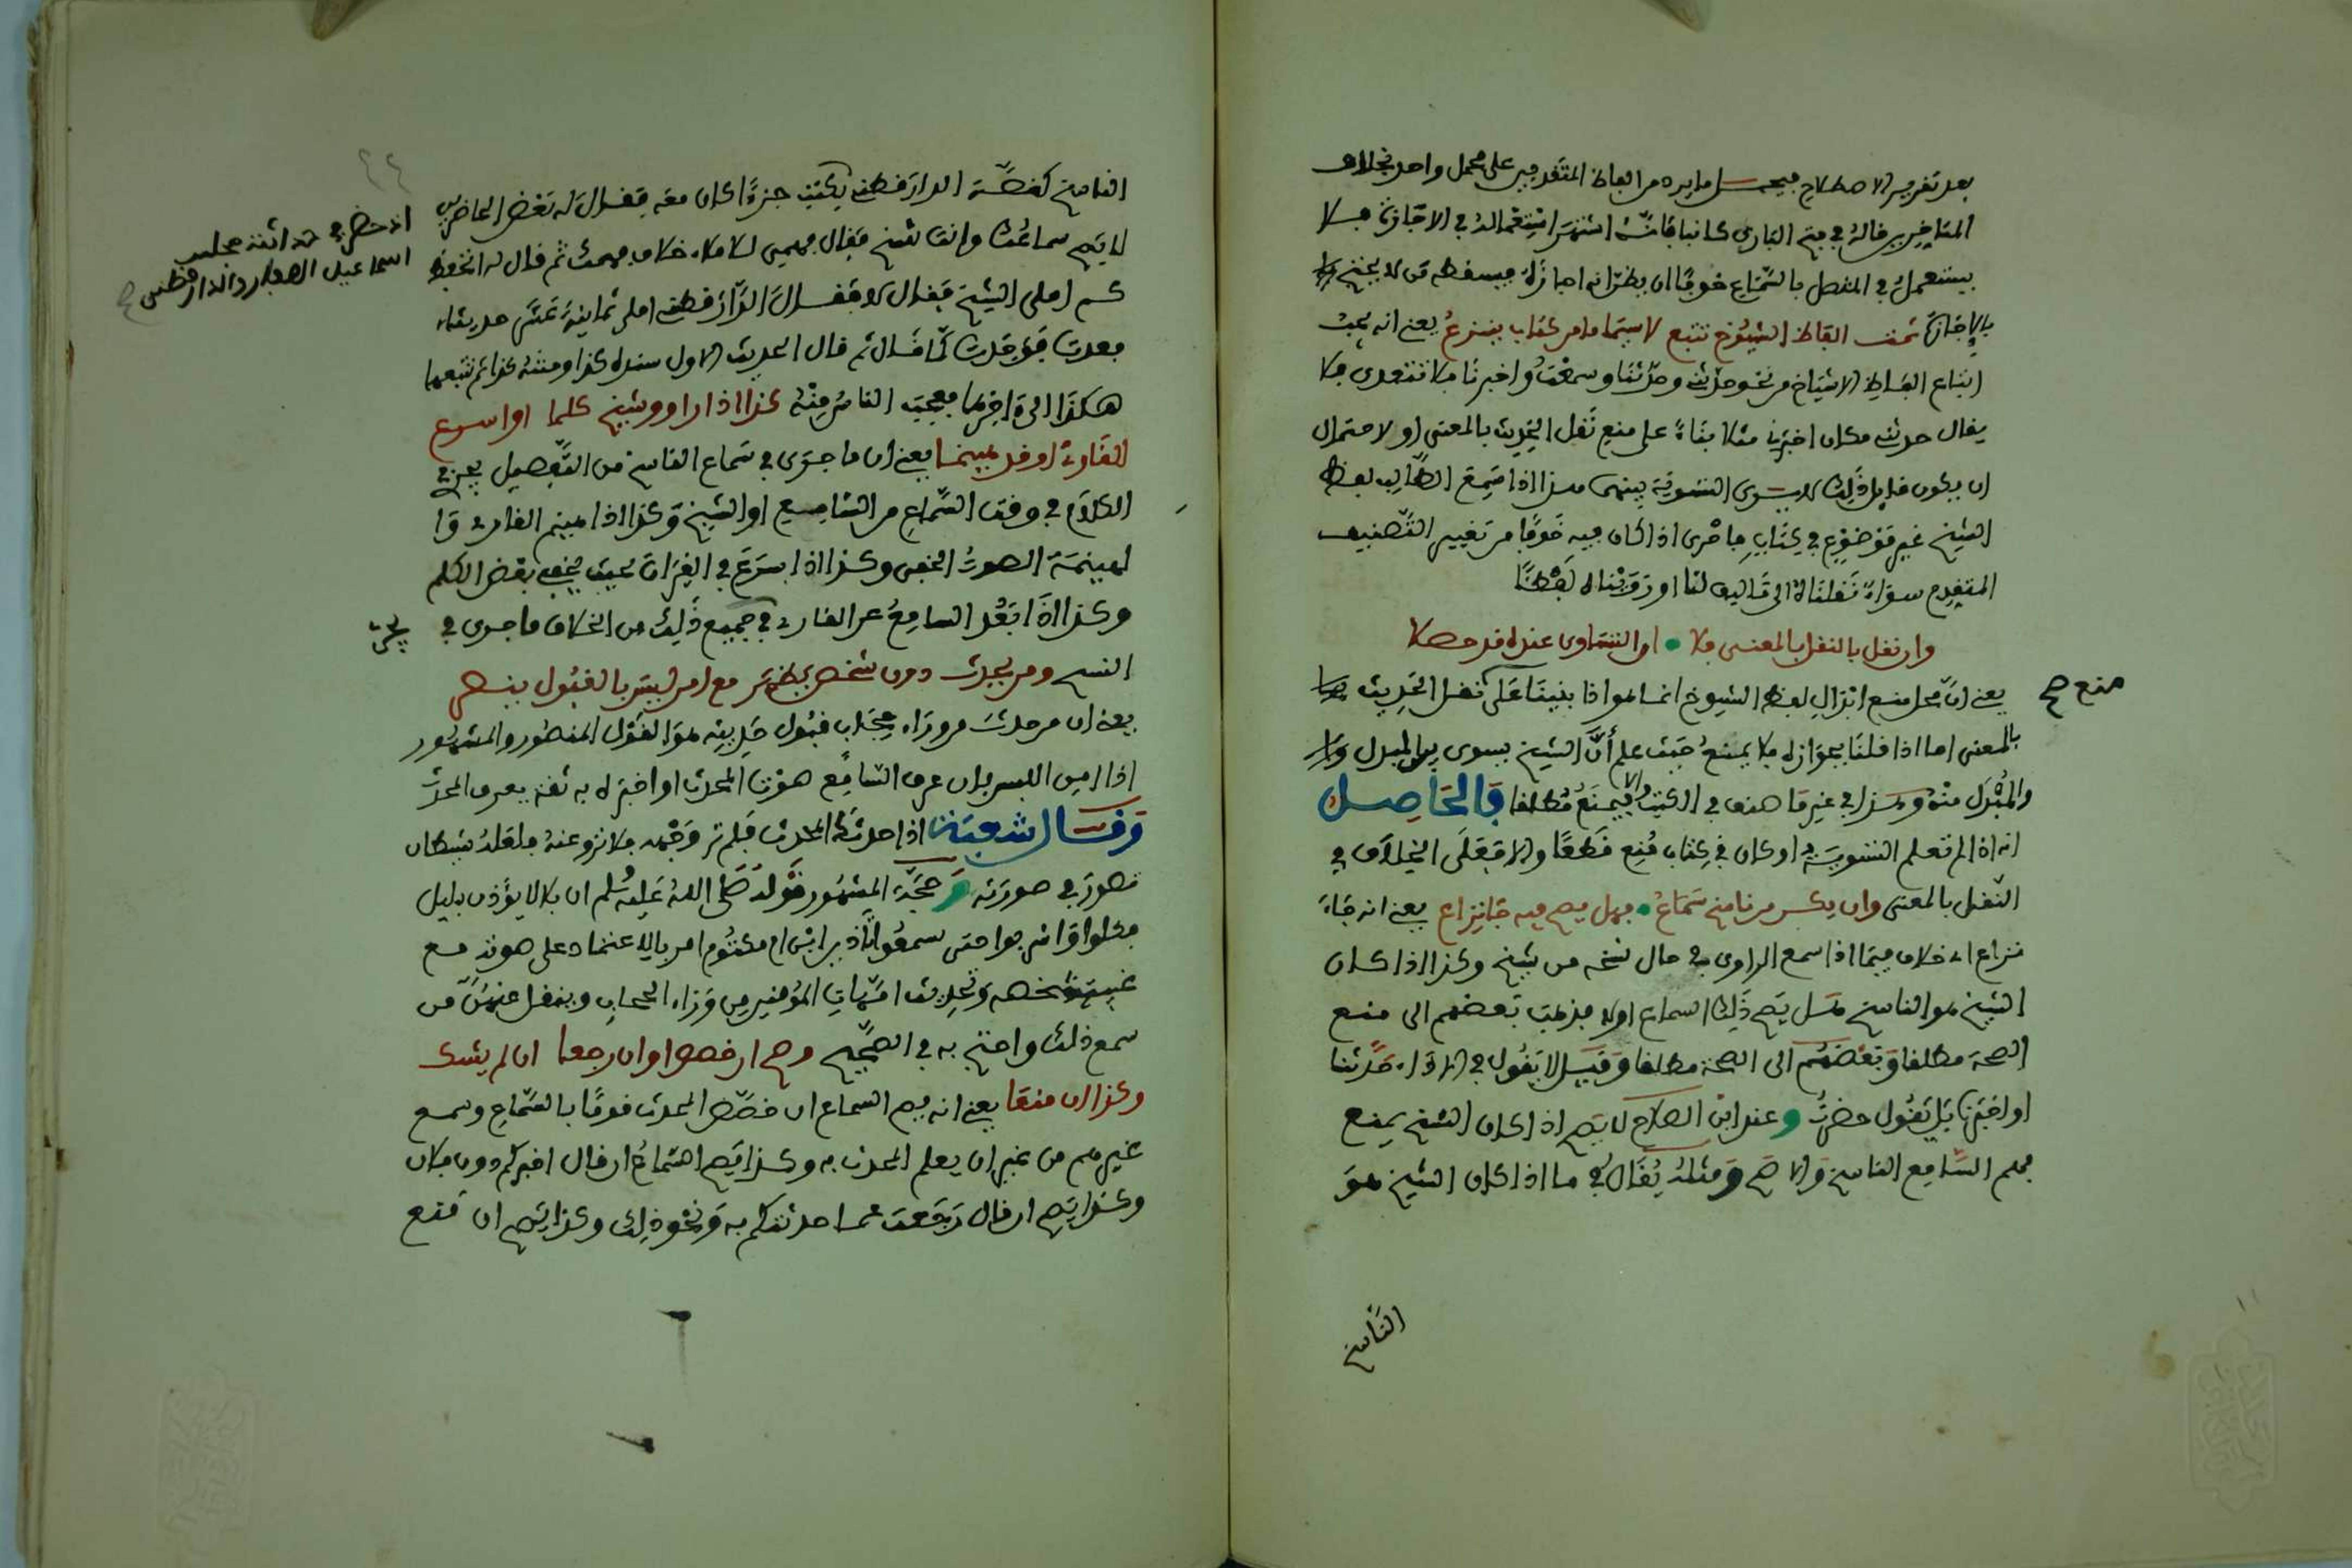 بعد تقرير الاصطلاح فيحمل ما يرد من الفاظ المتقدمين على محمل واحد بخلاف
المتاخرين قاله في فتح الباري كانبا فانه اشتهر استعماله في الاجازة فلا
يستعمل في المتصل بالسماع خوفا ان يظن انه اجازة فيسقطه من لا يحتج
بالاجازة ثمت الفاظ الشيوخ تتبع لاسيما ما من كتاب ينزع يعني انه يجب
اتباع الفاظ الاشياخ من نحو حدثني وحدثنا وسمعت واخبرنا فلا تتعدى فلا
يقال حدثنا مكان اخبرنا مثلا بناء على منع نقل الحديث بالمعنى او لاحتمال
ان يكون قايل ذلك لا يسوى التسوية بينهما هذا اذا سمع الطالب لفظ
الشيخ غير موضوع في كتاب فاحرى اذا كان فيه خوفا من تغيير التصنيف
المتقدم سواء نقلناه الى تاليف لنا او رويناه لفظا
وان نقل بالنقل بالمعنى فلا • او التساوي عنده قد حصلا
منع صح
يعني ان محل منع ابدال لفظ الشيوخ انما هو اذا بنينا على نقل الحديث
بالمعنى اما اذا قلنا بجوازه فلا يمنع حيث علم أن الشيخ يسوي بين المبدل
والمبدل منه وهذا في غير ما صنف في الكتب والا فيمنع مطلقا فالحاصل
انه اذا لم تعلم التسوية او كان في كتاب منع قطعا والا فعلى الخلاف في
النقل بالمعنى وان يكن من ناسخ سماع • فهل يصح فيه جا نزاع يعني انه جاء
نزاع اي خلاف فيما اذا سمع الراوي في حال نسخه من شيخ وكذا اذا كان
الشيخ هو الناسخ هل يصح ذلك السماع اولا فذهب بعضهم الى منع
الصحة مطلقا وبعضهم الى الصحة مطلقا وقيل لا يقول في الاداء حدثنا
او اخبرنا بل يقول حضرت وعند ابن الصلاح لا يصح اذا كان النسخ يمنع
فهم السامع الناسخ والا صح ومثله يقال في ما اذا كان الشيخ هو
الناسخ
الناسخ كقصة الدارقطني يكتب جزءا كان معه فقال له بعض الحاضرين
لا يصح سماعك وانت تنسخ فقال فهمي للاملاء خلاف فهمك ثم قال له اتحفظ
كم املى الشيخ فقال لا فقال الدارقطني املى ثمانية عشر حديثا
فعدت فوجدت كما قال ثم قال الحديث الاول سنده كذا ومتنه كذا ثم تتبعها
هكذا الى اخرها فعجب الناس منه كذا اذا راو وشيخ كلما او اسرع
القارئ او قد هينما يعني ان ما جرى في سماع الناسخ من التفصيل يجري في
الكلام في وقت السماع من السامع او الشيخ وكذا اذا هينم القارئ وا
لهينمة الصوت الخفي وكذا اذا اسرع في القراة بحيث يخفى بعض الكلم
وكذا اذا بعد السامع عن القارئ في جميع ذلك من الخلاف ما جرى في
النسخ ومن يحدث دون شخص يظهر مع امن لبس بالقبول ينصر
يعني ان من حدث من وراء حجاب قبول حديثه هو القول المنصور والمشهور
اذا امن اللبس بان عرف السامع صوت المحدث او اخبره به ثقة يعرف المحدث
وقال شعبة اذا حدثك المحدث فلم تر وجهه فلا ترو عنه فلعله شيطان
تصور في صورته وحجة المشهور قوله صلى الله عليه وسلم ان بلالا يؤذن بليل
فكلوا واشربوا حتى تسمعوا تأذين ابن ام مكتوم امر بالاعتماد على صوته مع
غيبة شخصه وتحديث امهات المؤمنين من وراء الحجاب وينقل عنهن من
سمع ذلك واحتج به في الصحيح وصح ان خصص او ان رجعا ان لم يشك
وكذا ان منعا يعني انه يصح السماع ان خصص المحدث قوما بالسماع وسمع
غيرهم من غير ان يعلم المحدث به وكذا يصح السماع ان قال اخبركم دون فلان
وكذا يصح ان قال رجعت عما حدثتكم به ونحو ذلك وكذا يصح ان منع
اذ حضر في حداثته مجلس
اسماعيل الصفار والدارقطني